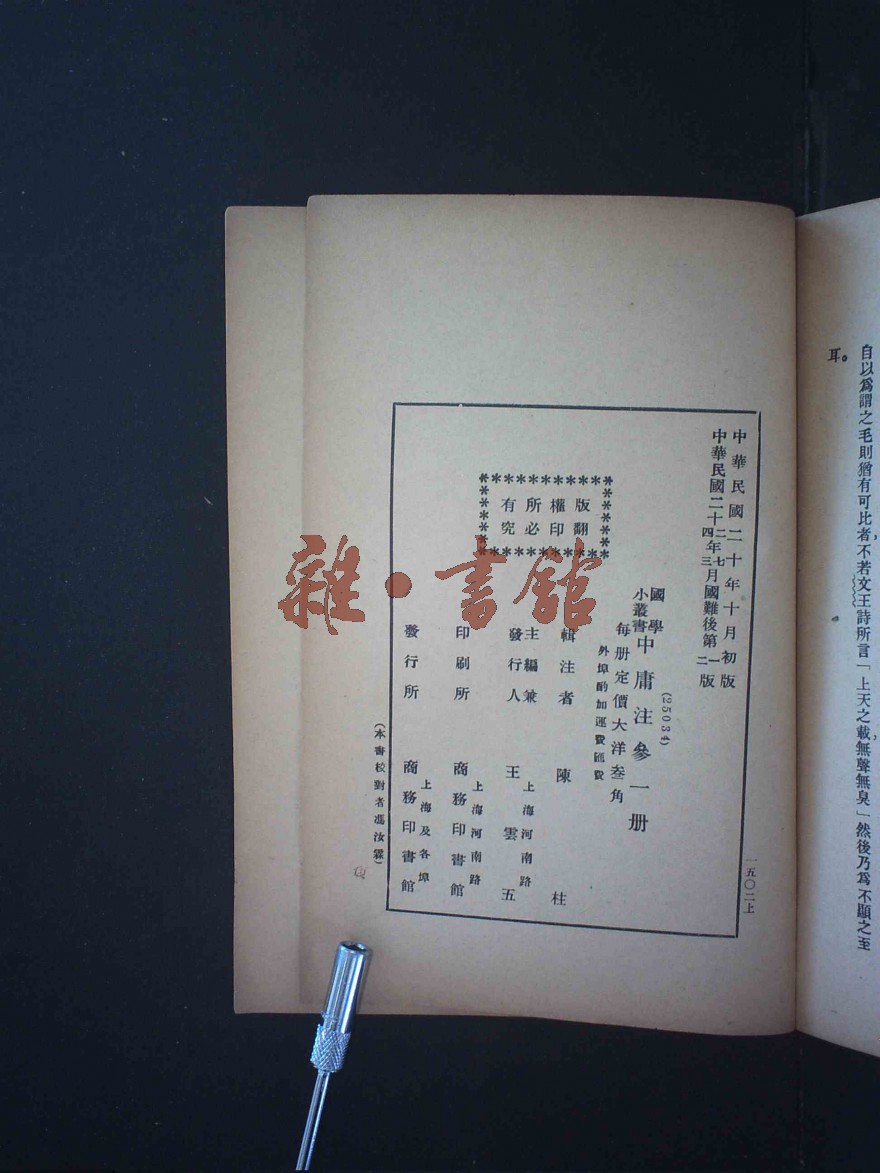 自以爲謂之毛則猶有可比者,不若文王詩所言「上天之載,無聲無臭」然後乃爲不顯之至
耳。
一五〇二上
中華民國二十年十月初版
中華民國二十二四年七三月國難後第一二版
(25034)
國學
小叢書
中庸注參一册
每册定價大洋叁角
外埠酌加運費匯費
版權所有
翻印必究
輯注者 陳柱
主編兼
發行人 王雲五
上海河南路
印刷所 商務印書館
上海河南路
發行所 商務印書館
上海及各埠
(本書校對者馮汝霖)
雜·書館